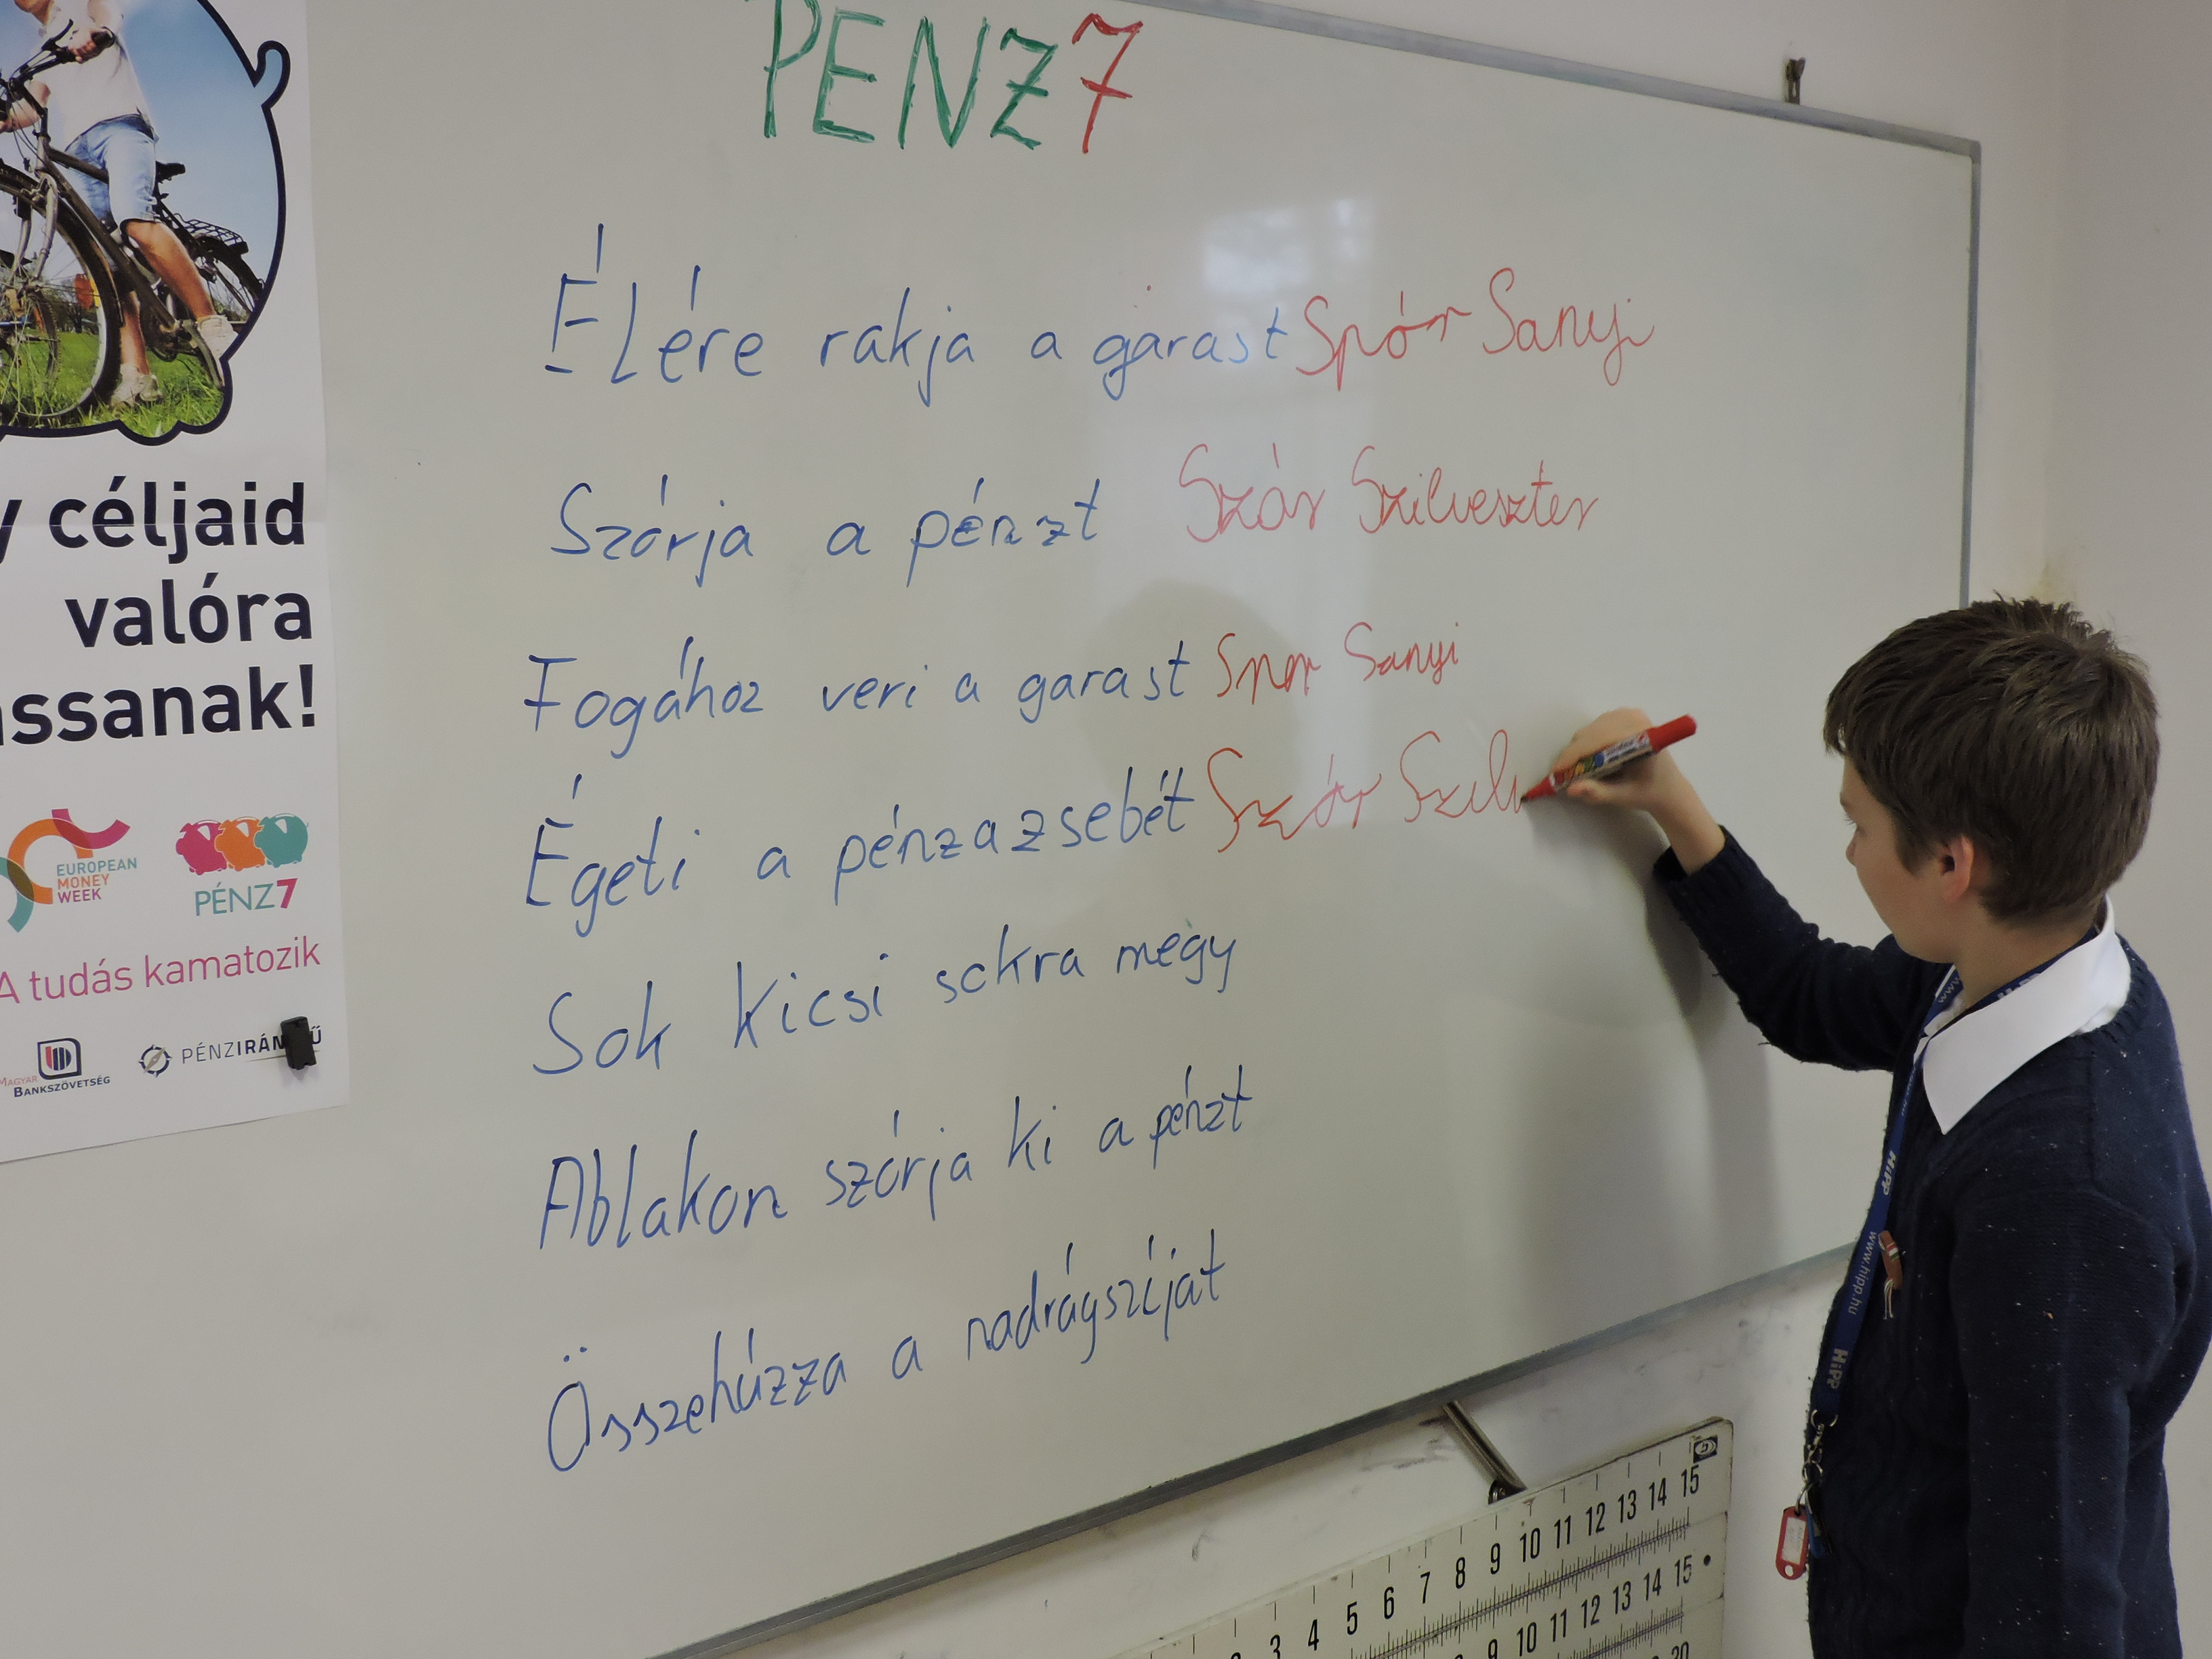 PENZ7
Élére rakja a garast Spór Sanyi
Szórja a pénzt Szór Szilveszter
Fogához veri a garast Spor Sanyi
Égeti a pénz a zsebét Szór Szilv
Sok kicsi sokra megy
Ablakon szórja ki a pénzt
Összehúzza a nadrágszíjat
y céljaid
valóra
ssanak!
EUROPEAN
MONEY
WEEK
PÉNZ7
A tudás kamatozik
MAGYAR
BANKSZÖVETSÉG
PÉNZIRÁN Ű
HiPP
www.hipp.hu
HiPP
3 4 5 6 7 8 9 10 11 12 13 14 15
9 10 11 12 13 14 15
20